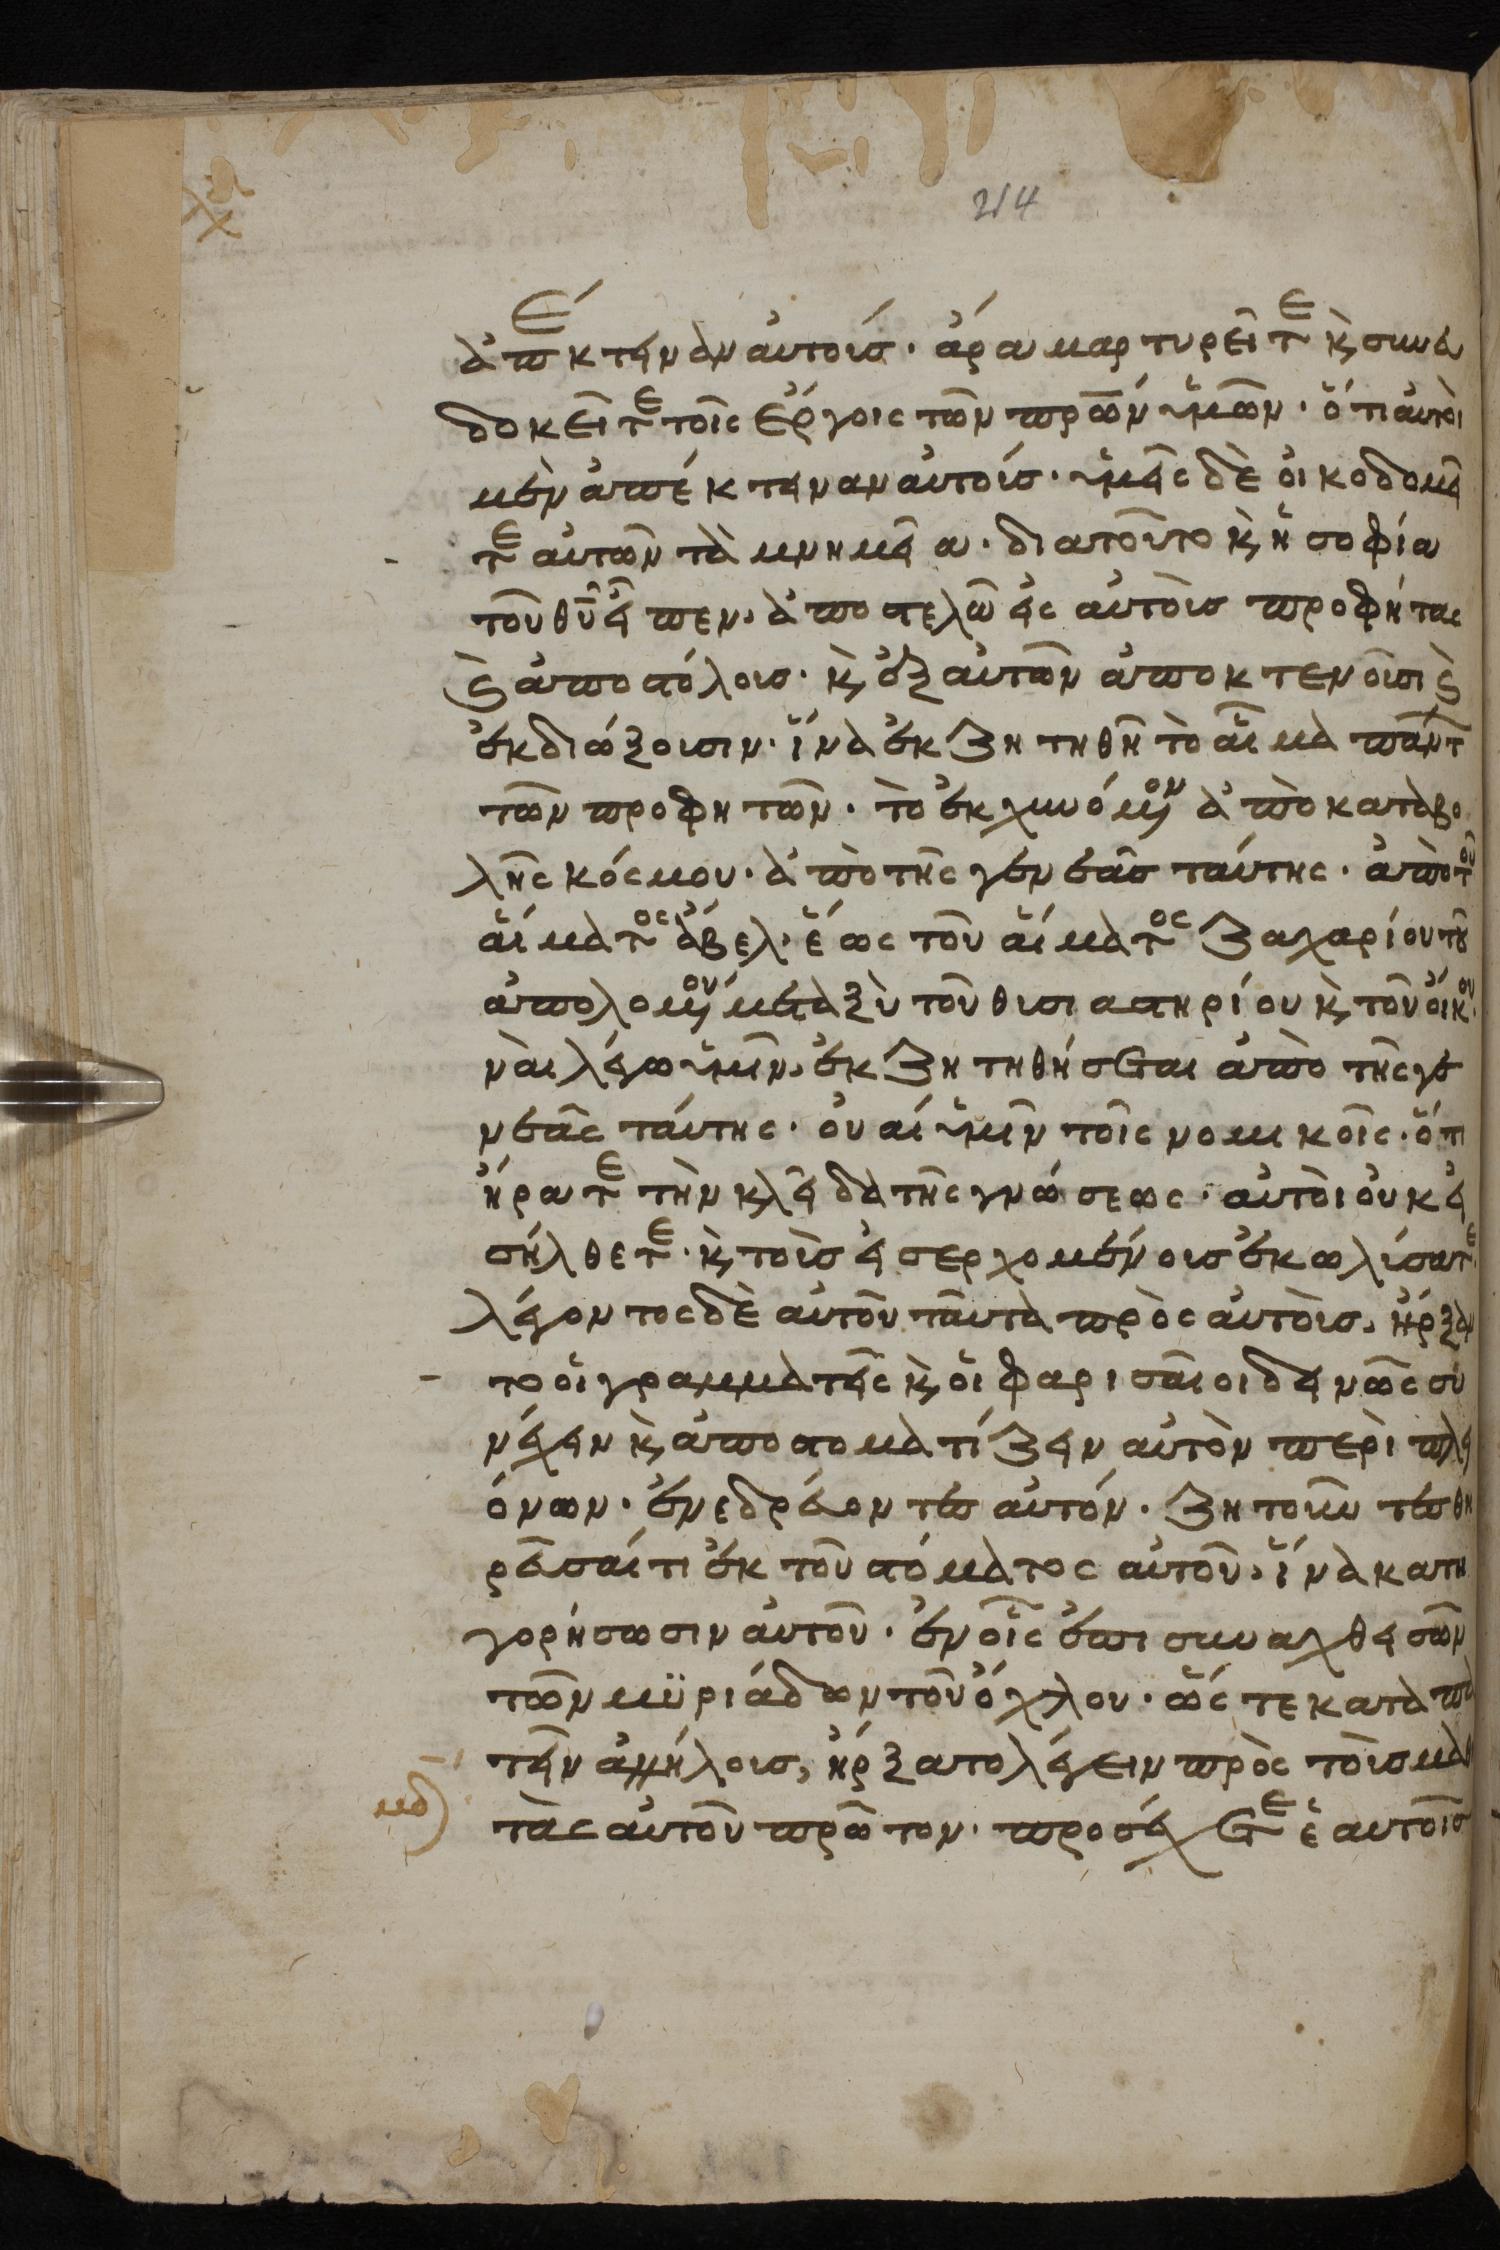 214
ἀπέκτειναν αὐτούσ. ἄρα μαρτυρεῖτε κ̀ συνευ
δοκεῖτε τοῖς ἔργοις τῶν πρ̅ων ὑμῶν. ὅτι αὐτοὶ
μὲν ἀπέκτειναν αὐτούσ. ὑμεῖς δὲ οἰκοδομεῖ
τε αὐτῶν τὰ μνημεῖα. διατοῦτο κ̀ ἡ σοφία
τοῦ θυ̅ εἶπεν. ἀποστελῶ εἰς αὐτοὺσ προφήτας
κ̀ ἀποστόλουσ. κ̀ ἐξ αὐτῶν ἀποκτενοῦσι κ̀
ἐκδιώξουσιν. ἵνα ἐκζητηθῆ τὸ αἷμα πάντ
τῶν προφητῶν. τὸ ἐκχυνόμενον ἀπὸ καταβο
λῆς κόσμου. ἀπὸ τῆς γενεᾶσ ταύτης. ἀπὸ τοῦ
αἵματος ἄβελ. ἕως τοῦ αἵματος Ζαχαρίου τοῦ
ἀπολομένου μεταξὺ τοῦ θυσιαστηρίου κ̀ τοῦ οἴκου.
ναὶ λέγω ὑμῖν. ἐκζητηθήσεται ἀπὸ τῆς γε
νεᾶς ταύτης. οὐαί ὑμῖν τοῖς νομικοῖς. ὅτι
ἤρατε τὴν κλεῖδα τῆς γνώσεως. αὐτοὶ οὐκ εἰ
σήλθετε. κ̀ τοὺσ εἰσερχομένουσ ἐκωλύσατε.
λέγοντος δὲ αὐτοῦ ταῦτα πρὸς αὐτοὺσ. ἤρξαν
το οἱ γραμματεῖς κ̀ οἱ φαρισαῖοι δεινῶς ἐν
έχειν κ̀ ἀποστοματίζειν αὐτὸν περὶ πλει
όνων. ἐνεδρεύοντεσ αὐτόν. ζητοῦντεσ θη
ρεῦσαί τι ἐκ τοῦ στόματος αὐτοῦ. ἵνα κατη
γορήσωσιν αὐτοῦ. ἐν οἷς ἐπισυναχθεισῶν
τῶν μϋριάδων τοῦ ὄχλου. ὥς τε καταπα
τεῖν ἀλλήλουσ, ἤρξατο λέγειν πρὸς τοὺσ μαθη
τὰς αὐτοῦ πρῶτον. προσέχετε ἑαυτοῖσ